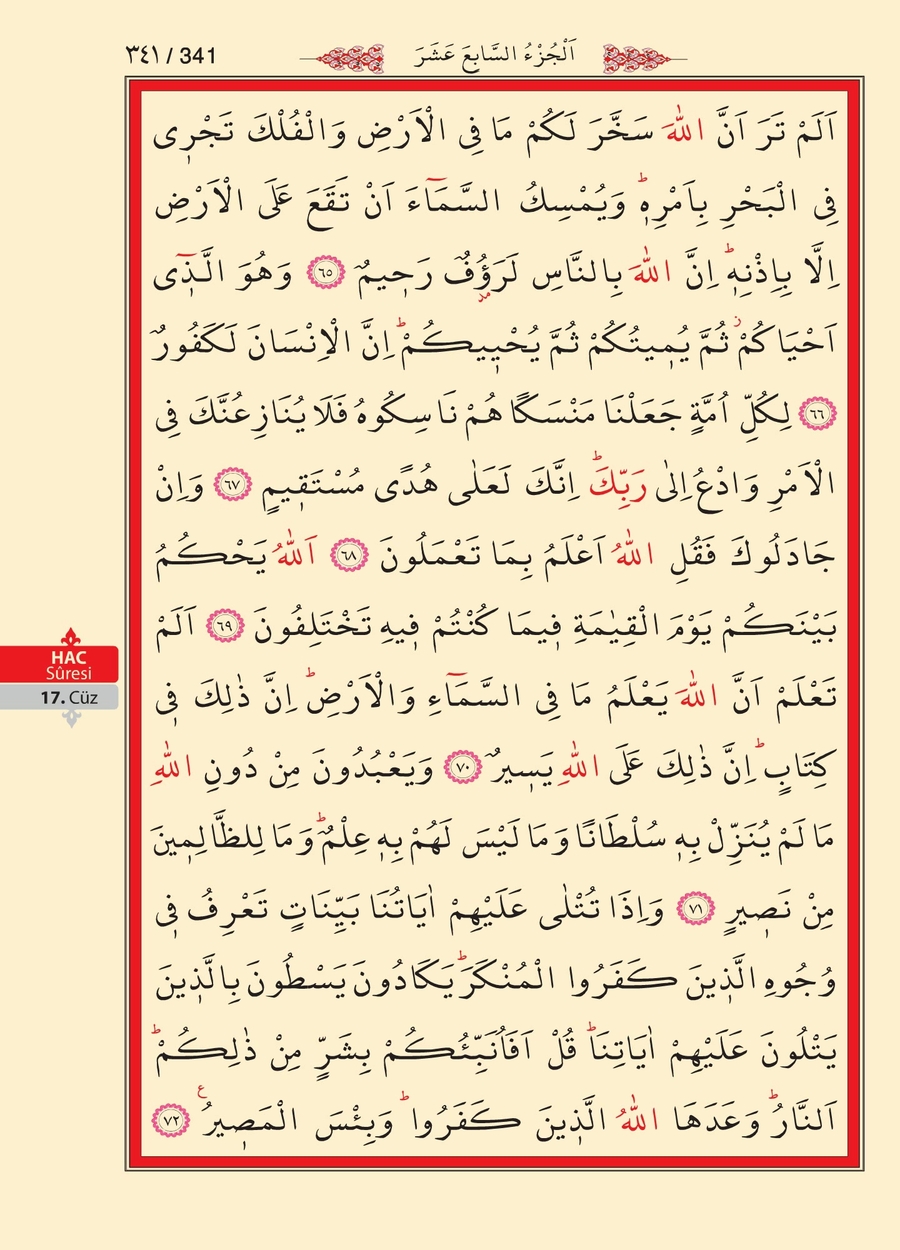 ٣٤١ / 341
اَلْجُزْءُ السَّابِعَ عَشَرَ
اَلَمْ تَرَ اَنَّ اللّٰهَ سَخَّرَ لَكُمْ مَا فِى الْاَرْضِ وَالْفُلْكَ تَجْرٖى
فِى الْبَحْرِ بِاَمْرِهٖؕ وَيُمْسِكُ السَّمَٓاءَ اَنْ تَقَعَ عَلَى الْاَرْضِ
اِلَّا بِاِذْنِهٖؕ اِنَّ اللّٰهَ بِالنَّاسِ لَرَؤُفٌ رَحٖيمٌ ﴿٦٥﴾ وَهُوَ الَّذٖٓى
اَحْيَاكُمْؗ ثُمَّ يُمٖيتُكُمْ ثُمَّ يُحْيٖيكُمْؕ اِنَّ الْاِنْسَانَ لَكَفُورٌ
﴿٦٦﴾ لِكُلِّ اُمَّةٍ جَعَلْنَا مَنْسَكًا هُمْ نَاسِكُوهُ فَلَا يُنَازِعُنَّكَ فِى
الْاَمْرِ وَادْعُ اِلٰى رَبِّكَؕ اِنَّكَ لَعَلٰى هُدًى مُسْتَقٖيمٍ ﴿٦٧﴾ وَاِنْ
جَادَلُوكَ فَقُلِ اللّٰهُ اَعْلَمُ بِمَا تَعْمَلُونَ ﴿٦٨﴾ اَللّٰهُ يَحْكُمُ
بَيْنَكُمْ يَوْمَ الْقِيٰمَةِ فٖيمَا كُنْتُمْ فٖيهِ تَخْتَلِفُونَ ﴿٦٩﴾ اَلَمْ
تَعْلَمْ اَنَّ اللّٰهَ يَعْلَمُ مَا فِى السَّمَٓاءِ وَالْاَرْضِؕ اِنَّ ذٰلِكَ فٖى
كِتَابٍؕ اِنَّ ذٰلِكَ عَلَى اللّٰهِ يَسٖيرٌ ﴿٧٠﴾ وَيَعْبُدُونَ مِنْ دُونِ اللّٰهِ
مَا لَمْ يُنَزِّلْ بِهٖ سُلْطَانًا وَمَا لَيْسَ لَهُمْ بِهٖ عِلْمٌؕ وَمَا لِلظَّالِمٖينَ
مِنْ نَصٖيرٍ ﴿٧١﴾ وَاِذَا تُتْلٰى عَلَيْهِمْ اٰيَاتُنَا بَيِّنَاتٍ تَعْرِفُ فٖى
وُجُوهِ الَّذٖينَ كَفَرُوا الْمُنْكَرَؕ يَكَادُونَ يَسْطُونَ بِالَّذٖينَ
يَتْلُونَ عَلَيْهِمْ اٰيَاتِنَاؕ قُلْ اَفَاُنَبِّئُكُمْ بِشَرٍّ مِنْ ذٰلِكُمْؕ
اَلنَّارُؕ وَعَدَهَا اللّٰهُ الَّذٖينَ كَفَرُواؕ وَبِئْسَ الْمَصٖيرُࣖ ﴿٧٢﴾
HAC
Sûresi
17. Cüz